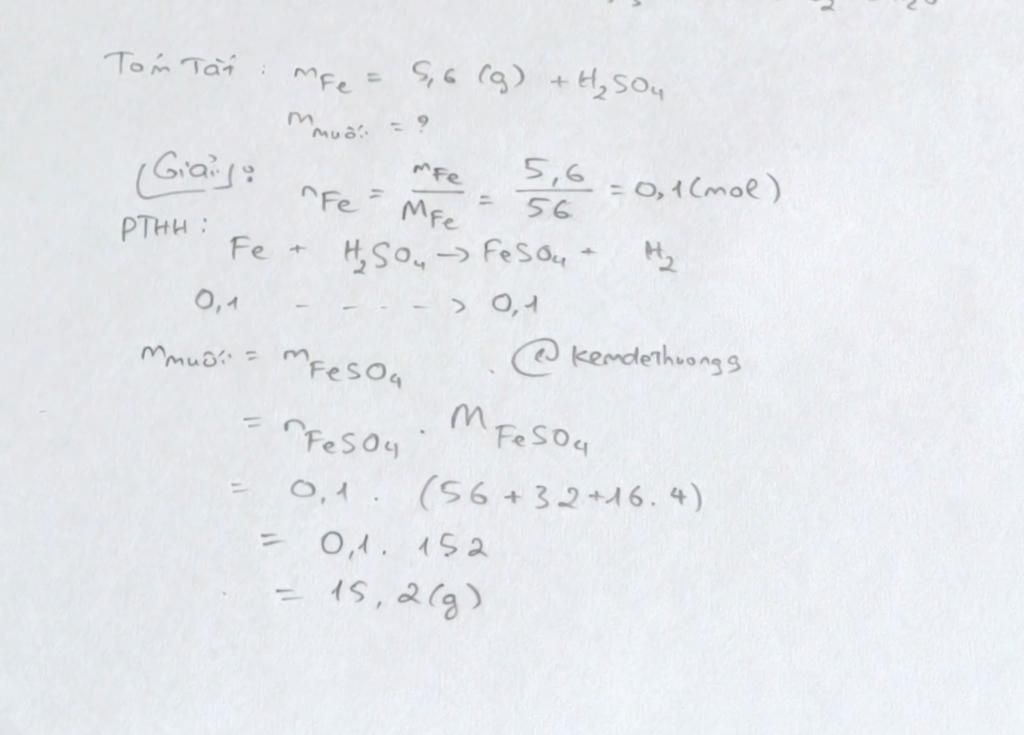 Tóm Tắt : mFe = 5,6 (g) + H₂SO₄
mmuối = ?
(Giải) :
nFe = mFe / MFe = 5,6 / 56 = 0,1 (mol)
PTHH :
Fe + H₂SO₄ → FeSO₄ + H₂
0,1 - - - - > 0,1
mmuối = mFeSO₄
@ kemdethuongs
= nFeSO₄ . MFeSO₄
= 0,1 . (56 + 32 + 16 . 4)
= 0,1 . 152
= 15,2 (g)